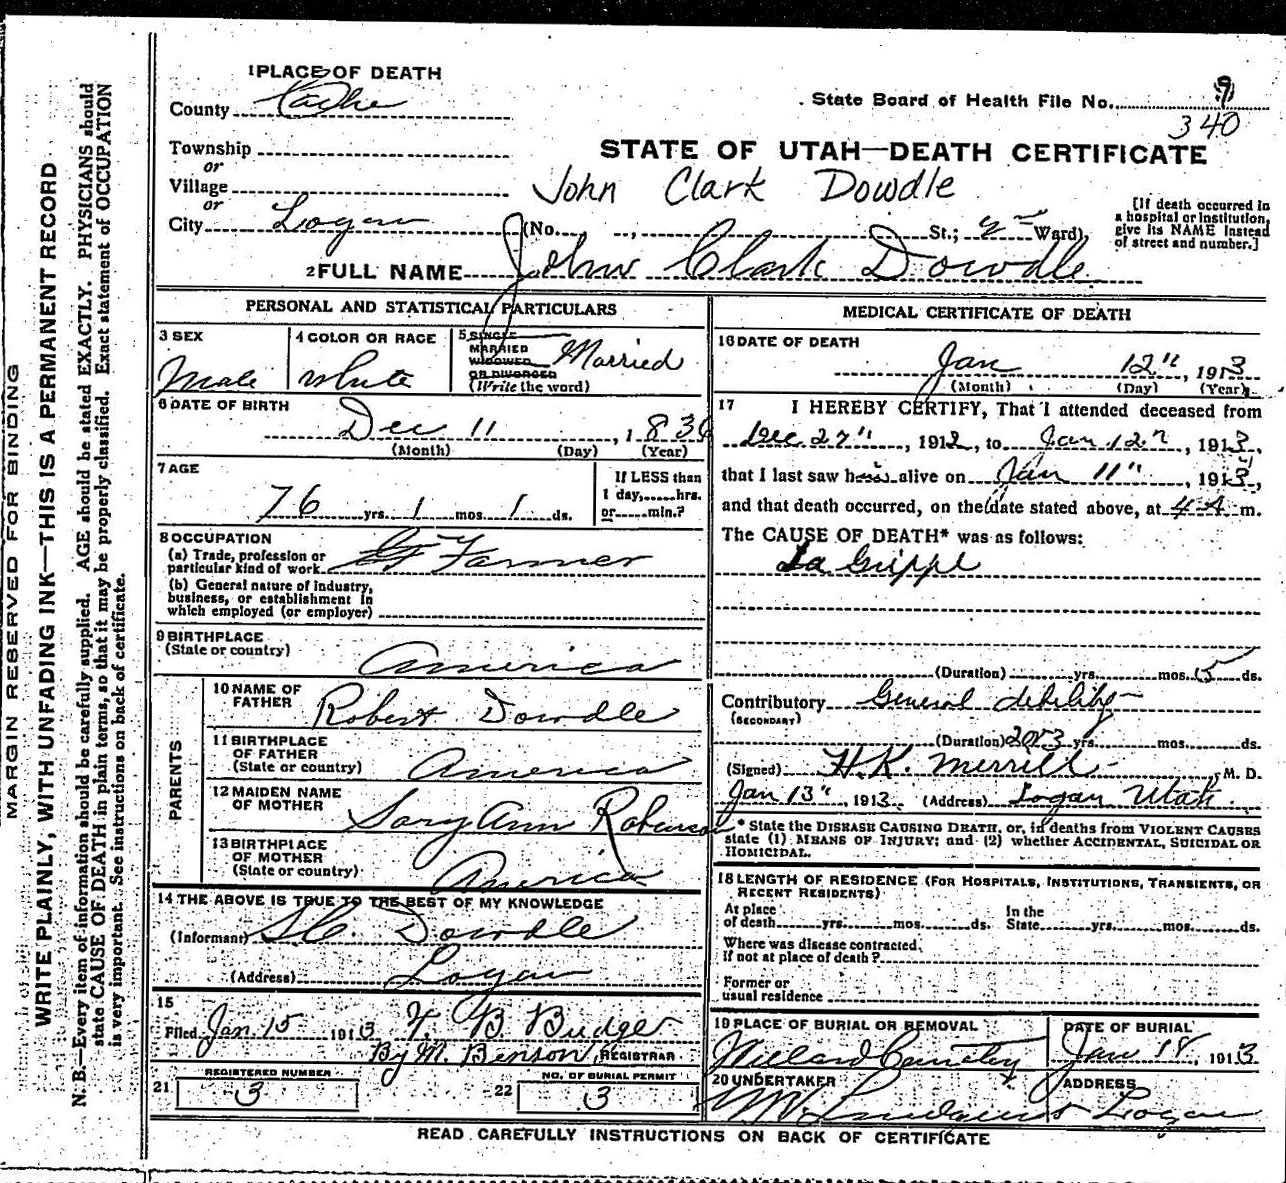 MARGIN RESERVED FOR BINDING
WRITE PLAINLY, WITH UNFADING INK—THIS IS A PERMANENT RECORD
N. B.—Every item of information should be carefully supplied. AGE should be stated EXACTLY. PHYSICIANS should
state CAUSE OF DEATH in plain terms, so that it may be properly classified. Exact statement of OCCUPATION
is very important. See instructions on back of certificate.
1 PLACE OF DEATH
County Cache
Township
or
Village
or
City Logan
State Board of Health File No. 9
340
STATE OF UTAH—DEATH CERTIFICATE
John Clark Dowdle
(No. , St.; 2nd Ward)
[If death occurred in
a hospital or institution,
give its NAME instead
of street and number.]
2 FULL NAME John Clark Dowdle
PERSONAL AND STATISTICAL PARTICULARS
3 SEX
Male
4 COLOR OR RACE
White
5 SINGLE
MARRIED
WIDOWED
OR DIVORCED
(Write the word)
Married
6 DATE OF BIRTH
Dec 11, 1836
(Month) (Day) (Year)
7 AGE
76 yrs. 1 mos. 1 ds.
If LESS than
1 day, hrs.
or min.?
8 OCCUPATION
(a) Trade, profession or
particular kind of work Farmer
(b) General nature of industry,
business, or establishment in
which employed (or employer)
9 BIRTHPLACE
(State or country)
America
PARENTS
10 NAME OF
FATHER
Robert Dowdle
11 BIRTHPLACE
OF FATHER
(State or country)
America
12 MAIDEN NAME
OF MOTHER
Ann Robinson
13 BIRTHPLACE
OF MOTHER
(State or country)
America
14 THE ABOVE IS TRUE TO THE BEST OF MY KNOWLEDGE
(Informant) S. C. Dowdle
(Address) Logan
15
Filed Jan 15 1913 F. B. Budge
By M. Benson REGISTRAR
21 REGISTERED NUMBER
3
22 NO. OF BURIAL PERMIT
3
MEDICAL CERTIFICATE OF DEATH
16 DATE OF DEATH
Jan 12", 1913
(Month) (Day) (Year)
17 I HEREBY CERTIFY, That I attended deceased from
Dec 27", 1912, to Jan 12", 1913,
that I last saw him alive on Jan 11", 1913,
and that death occurred, on the date stated above, at 4 A m.
The CAUSE OF DEATH* was as follows:
La Grippe
(Duration) yrs. mos. 15 ds.
Contributory General debility
(SECONDARY)
(Duration) 2 or 3 yrs. mos. ds.
(Signed) H. K. Merrill, M. D.
Jan 13", 1913. (Address) Logan Utah
* State the DISEASE CAUSING DEATH, or, in deaths from VIOLENT CAUSES
state (1) MEANS OF INJURY; and (2) whether ACCIDENTAL, SUICIDAL OR
HOMICIDAL.
18 LENGTH OF RESIDENCE (FOR HOSPITALS, INSTITUTIONS, TRANSIENTS, OR
RECENT RESIDENTS)
At place
of death yrs. mos. ds.
In the
State yrs. mos. ds.
Where was disease contracted,
if not at place of death?
Former or
usual residence
19 PLACE OF BURIAL OR REMOVAL
Willard Cemetery
DATE OF BURIAL
Jan 18, 1913
20 UNDERTAKER
ADDRESS
Logan
READ CAREFULLY INSTRUCTIONS ON BACK OF CERTIFICATE